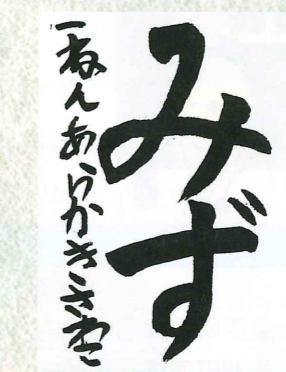 みず
一ねんあらかき